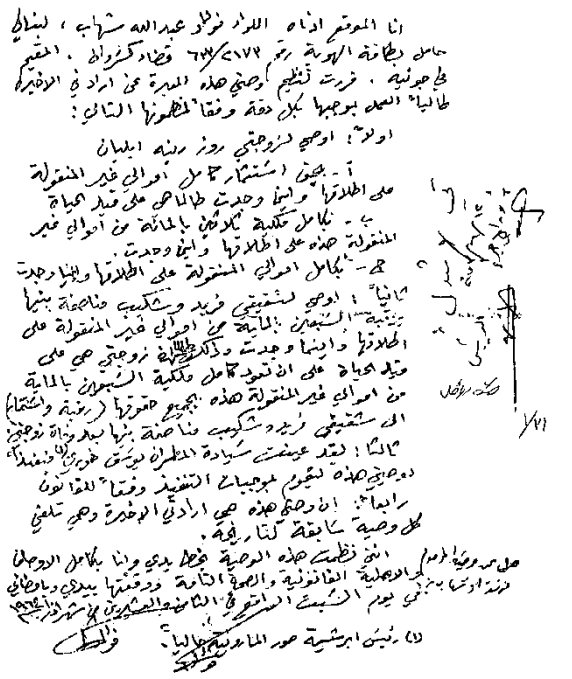 انا الموقع ادناه اللواء فؤاد عبدالله شهاب ، لبناني
حامل بطاقة الهوية رقم ٢١٧٣/٦٣ قضاء كسروان . المقيم
في جونيه . قررت تنظيم وصيتي هذه المعبرة عن ارادتي الاخيرة
طالباً العمل بموجبها بكل دقة وفقاً لمنطوقها التالي :
اولاً : اوصي لزوجتي روز رينه
أ - بحق استثمار كامل اموالي غير المنقولة
على اطلاقها واينما وجدت طالما هي على قيد الحياة
ب - بكامل ملكية ثلاثين بالمائة من اموالي غير
المنقولة هذه على اطلاقها واينما وجدت .
ج - بكامل اموالي المنقولة على اطلاقها واينما وجدت
ثانياً : اوصي لشقيقي فريد وشكيب مناصفة بينها
السبعين بالماية من اموالي غير المنقولة على
اطلاقها واينما وجدت وذلك زوجتي هي على
قيد الحياة على ان تعود كامل ملكية السبعين بالماية
من اموالي غير المنقولة هذه بجميع حقوقها ( رقبة واستثمار )
الى شقيقي فريد وشكيب مناصفة بينها بعد وفاة زوجتي
ثالثاً : لقد عينت سيادة المطران يوسف خوري (١) منفذاً
لوصيتي هذه ليقوم بموجبات التنفيذ وفقاً للقانون
رابعاً : ان وصيتي هذه هي ارادتي الاخيرة وهي تلغي
كل وصية سابقة لتاريخه .
انني نظمت هذه الوصية بخط يدي وانا بكامل الاوصاف
و الاهلية القانونية والصحة التامة ووقعتها بيدي وبامضائي
في يوم السبت الواقع في الثامن والعشرين من شهر
(١) رئيس ابرشية صور المارونية حالياً .